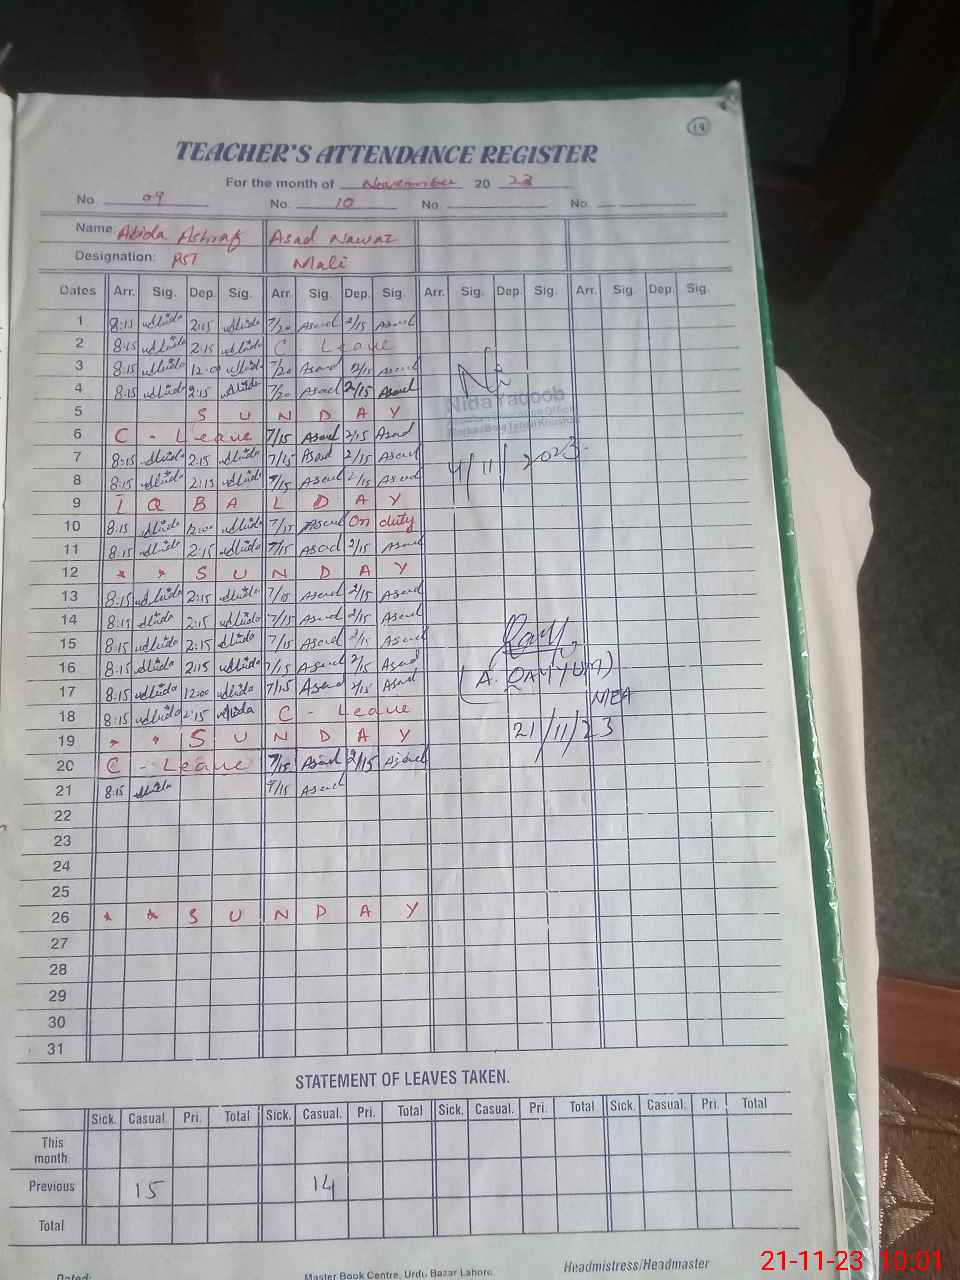 19
TEACHER'S ATTENDANCE REGISTER
For the month of November 20 23
No. 09 No. 10 No. No.
Name: Abida Ashraf Asad Nawaz
Designation: PST Mali
Dates Arr. Sig. Dep. Sig. Arr. Sig. Dep. Sig. Arr. Sig. Dep. Sig. Arr. Sig. Dep. Sig.
1 8:15 Abida 2:15 Abida 7/20 Asad 2/15 Asad
2 8:15 Abida 2:15 Abida C - Leave
3 8:15 Abida 12:00 Abida 7/20 Asad 2/15 Asad
4 8:15 Abida 2:15 Abida 7/20 Asad 2/15 Asad
Nida Yaqoob
5 S U N D A Y
6 C - Leave 7/15 Asad 2/15 Asad
7 8:15 Abida 2:15 Abida 7/15 Asad 2/15 Asad 4/11/2023.
8 8:15 Abida 2:15 Abida 7/15 Asad 2/15 Asad
9 I Q B A L D A Y
10 8:15 Abida 12:00 Abida 7/15 Asad On duty
11 8:15 Abida 2:15 Abida 7/15 Asad 2/15 Asad
12 * * S U N D A Y
13 8:15 Abida 2:15 Abida 7/15 Asad 2/15 Asad
14 8:15 Abida 2:15 Abida 7/15 Asad 2/15 Asad
15 8:15 Abida 2:15 Abida 7/15 Asad 2/15 Asad
16 8:15 Abida 2:15 Abida 7/15 Asad 2/15 Asad (A. QAYYUM)
17 8:15 Abida 12:00 Abida 7/15 Asad 2/15 Asad MEA
18 8:15 Abida 2:15 Abida C - Leave 21/11/23
19 * * S U N D A Y
20 C - Leave 7/15 Asad 2/15 Asad
21 8:15 Abida 7/15 Asad
22
23
24
25
26 * * S U N D A Y
27
28
29
30
31
STATEMENT OF LEAVES TAKEN.
Sick. Casual. Pri. Total Sick. Casual. Pri. Total Sick. Casual. Pri. Total Sick. Casual. Pri. Total
This month.
Previous 15 14
Total
Dated: Master Book Centre, Urdu Bazar Lahore. Headmistress/Headmaster
21-11-23 10:01